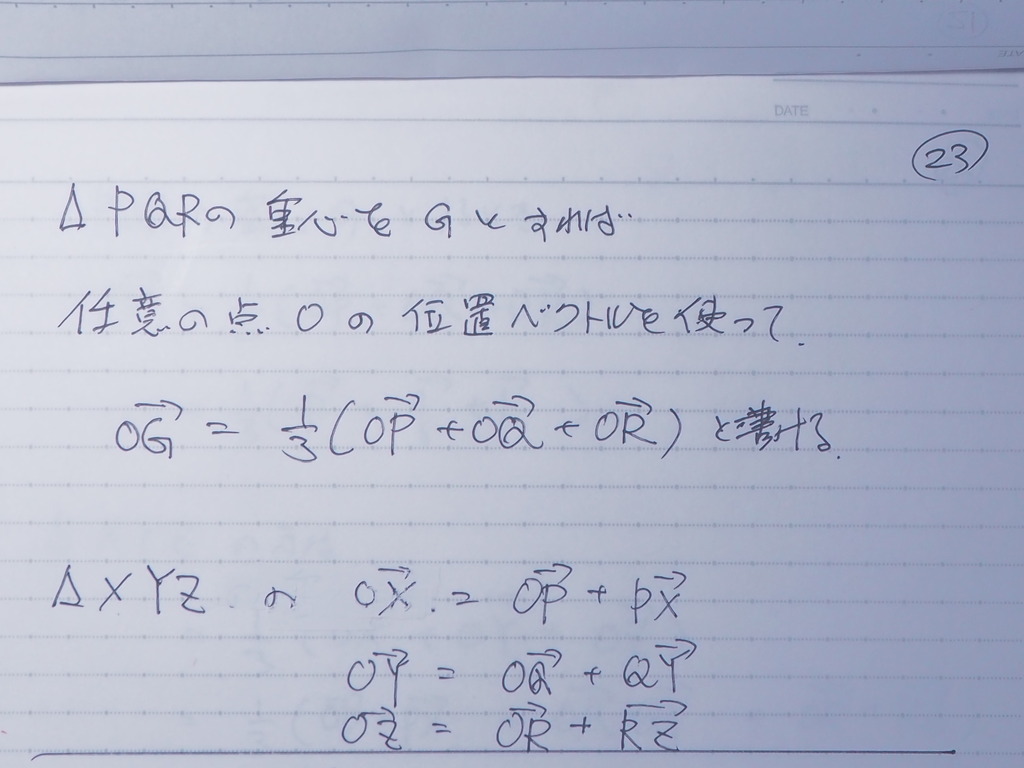 DATE
㉓
△PQRの重心をGとすれば
任意の点Oの位置ベクトルを使って.
OG→ = 1/3(OP→ + OQ→ + OR→) と書ける.
△XYZ. の OX→. = OP→ + PX→
OY→ = OQ→ + QY→
OZ→ = OR→ + RZ→